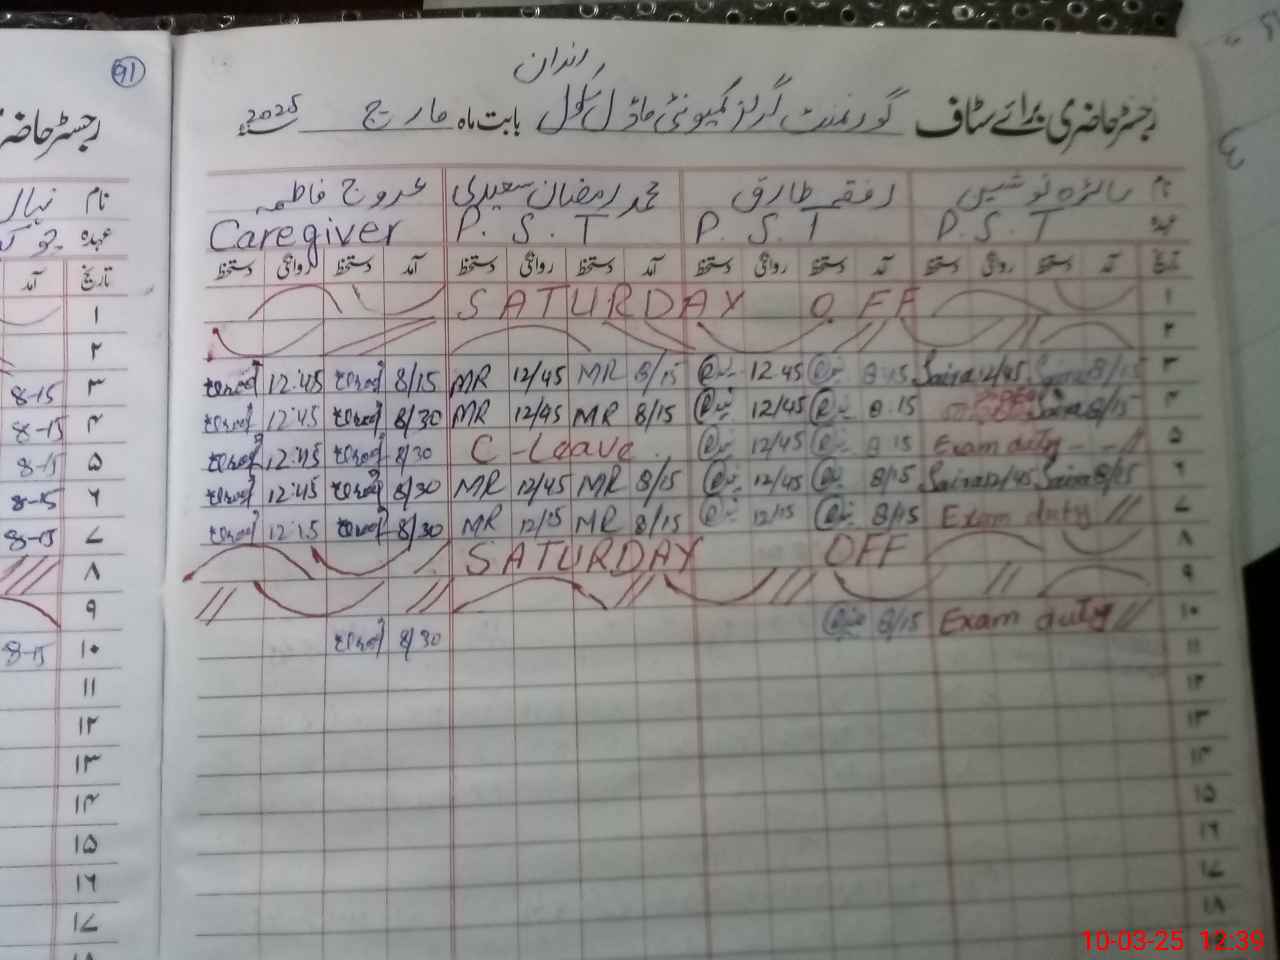 راندان
رجسٹر حاضری برائے سٹاف گورنمنٹ گرلز کمیونٹی ماڈل سکول بابت ماہ مارچ 2025ء
نام سائرہ نوشین محمد رمضان سعیدی عروج فاطمہ
عہدہ P.S.T P.S.T P.S.T Caregiver
تاریخ آمد دستخط روانگی دستخط آمد دستخط روانگی دستخط آمد دستخط روانگی دستخط آمد دستخط روانگی دستخط
۱ SATURDAY OFF
۲
۳ Saira 8/15 Saira 12/45 8:15 12:45 8/15 MR 12/45 MR 8/15 12:45
۴ Saira 8/15 8:15 12/45 8/15 MR 12/45 MR 8/30 12:45
۵ Exam duty 8:15 12/45 C-Leave 8/30 12:45
۶ Saira 8/15 Saira 12/45 8/15 12/45 8/15 MR 12/45 MR 8/30 12:45
۷ Exam duty 8/15 12/15 8/15 MR 12/15 MR 8/30 12:15
۸ SATURDAY OFF
۹
۱۰ Exam duty 8/15 8/30
۱۱
۱۲
۱۳
۱۴
۱۵
۱۶
۱۷
۱۸
91
رجسٹر حاضر
نام
عہدہ
تاریخ آمد
۱
۲
۳ 8-15
۴ 8-15
۵ 8-15
۶ 8-15
۷ 8-15
۸
۹
۱۰ 8-15
۱۱
۱۲
۱۳
۱۴
۱۵
۱۶
۱۷
10-03-25 12:39